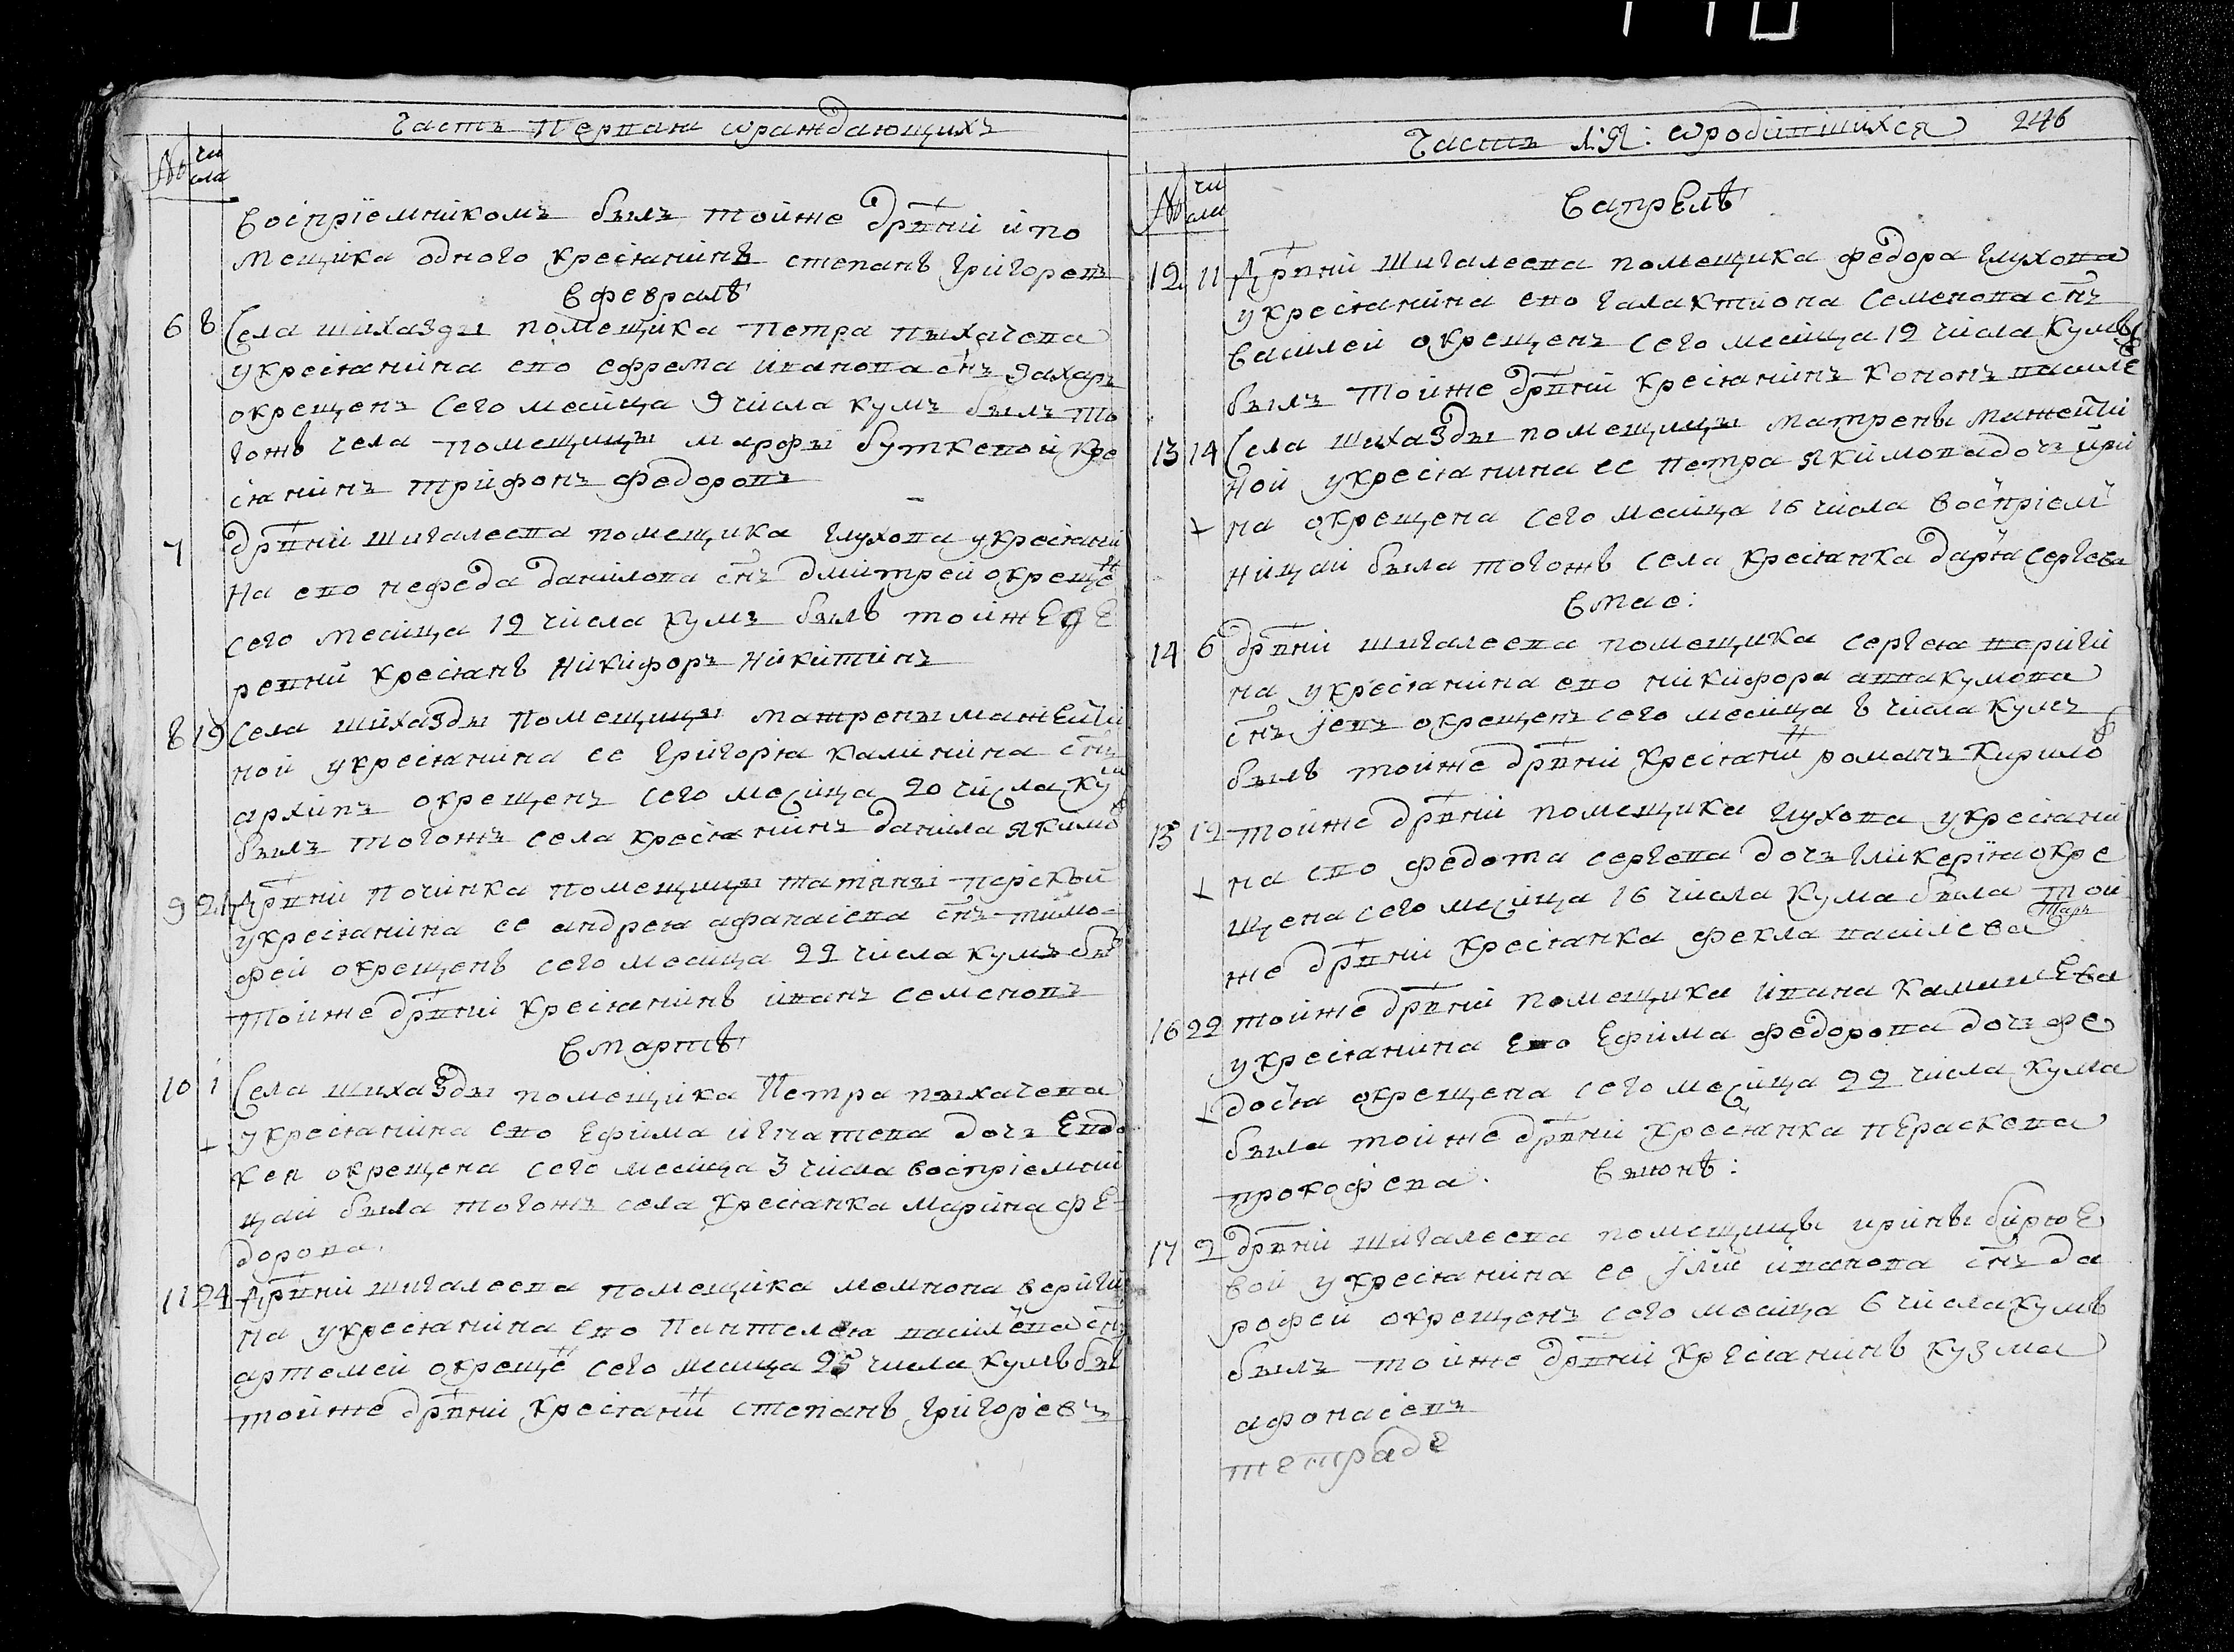 Часть первая ѡраждающихъ
№ чи
сла
Воспріемникомъ былъ тойже дрвни и по
мещика одного крестьянинъ степанъ григоревъ
в февралѣ
6 8 Села шихазды помещика петра пыхачева
у крестьянина ево ефрема иванова снъ захаръ
окрещенъ сего месица 9 числа кумъ былъ то
гожъ села помещицы марфы буткевой кре
стьянинъ трифонъ федоровъ
7 дрвни шигалеева помещика глухова у крестьяни
на ево нефеда данилова снъ дмитрей окрещенъ
сего месица 12 числа кумъ былъ тойже де
ревни крестьянъ никифоръ никитинъ
8 19 Села шихазды помещицы матрены манѣйки
ной у крестьянина ее григорья калинина снъ
архипъ окрещенъ сего месица 20 числа кумъ
былъ тогожъ села крестьянинъ данила якимов
9 21 Дрвни починка помещицы татяны
у крестьянина ее андрея афанасева снъ тимо-
фей окрещенъ сего месица 22 числа кумъ бы
тойже дрвни крестьянинъ иванъ семеновъ
в мартѣ
10 1 Села шихазды помещика петра пыхачева
у крестьянина ево ефима игнатева дочь евдо
кея окрещена сего месица 3 числа воспріемни
цаи была тогожъ села крестьянка марина фе-
дорова.
11 24 Дрвни шигалеева помещика мемнона вериги
на у крестьянина ево пантелея василева снъ
артемей окрещен сего месица 25 числа кумъ бы
тойже дрвни крестьянин степанъ григоревъ
Часть 1:я: ѡродившихся 246
№ чи
сла
в апрелѣ
12 11 Дрвни шигалеева помещика федора глухова
у крестьянина ево галактиона семенова снъ
василей окрещенъ сего месица 12 числа кумъ
былъ тойже дрвни крестьянинъ кононъ василе
13 14 Села шихазды помещицы матрены манѣйки
ной у крестьянина ее петра якимова дочь ири
на окрещена сего месица 16 числа воспріем
ницаи была тогожъ села крестьянка дарья сергева
в мае:
14 6 дрвни шигалеева помещика сергея вериги
на у крестьянина ево никифора аввакумова
снъ іевъ окрещенъ сего месица 8 числа кумъ
былъ тойже дрвни крестьянин романъ кирилов
15 12 тойже дрвни помещика глухова у крестьяни
на ево федота сергева дочь гликерія окре
щена сего месица 16 числа кума была той
же дрвни крестьянка фекла василева
16 22 тойже дрвни помещика
у крестьянина ево ефима федорова дочь фе
досья окрещена сего месица 22 числа кума
была тойже дрвни крестьянка пераскева
прокофева. в июнѣ:
17 2 дрвни шигалеева помещицы ирины бирюе
вой у крестьянина ее іліи иванова снъ да
рофей окрещенъ сего месица 6 числа кумъ
былъ тойже дрвни крестьянинъ кузма
афонасевъ
тетраде